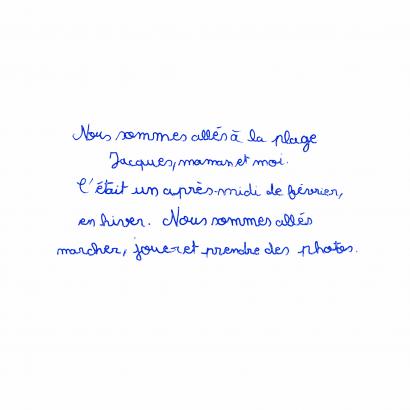 Nous sommes allés à la plage
Jacques, maman et moi.
C'était un après-midi de février,
en hiver. Nous sommes allés
marcher, jouer et prendre des photos.